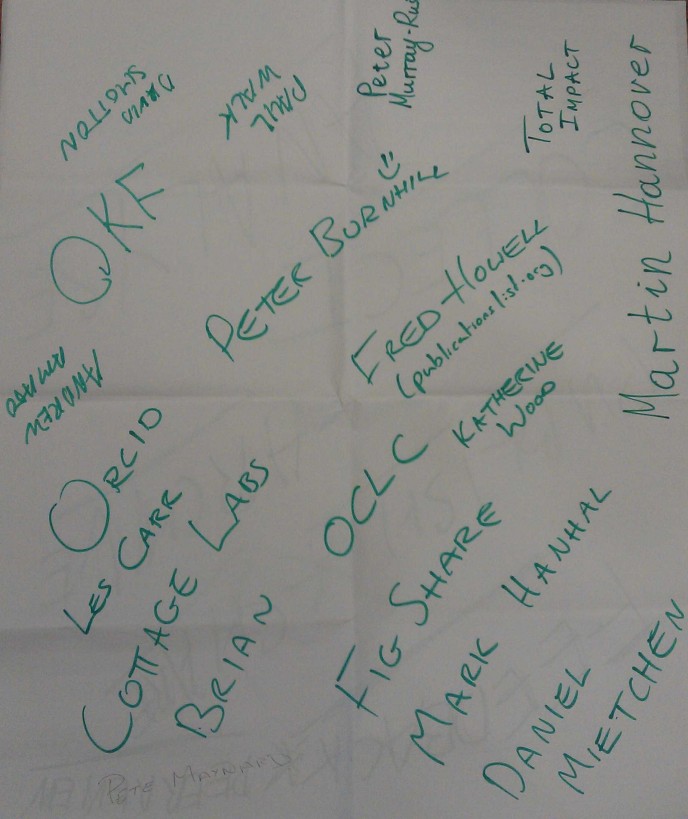 DAVID
SHOTTON
PAUL
WALK
Peter
Murray-Rus
TOTAL
IMPACT
Martin Hannover
OKF
PETER BURNHILL
FRED HOWELL
(publicationslist.org)
ANDREW
ORCID
LES CARR
COTTAGE LABS
BRIAN
OCLC
KATHERINE
WOOD
FIG SHARE
MARK HANHAL
DANIEL
MIETCHEN
PETE